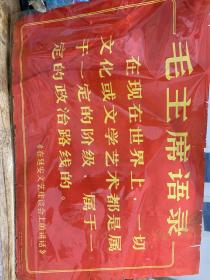 毛主席语录
在现在世界上,一切
文化或文学艺术都是属
于一定的阶级,属于一
定的政治路线的。
《在延安文艺座谈会上的讲话》